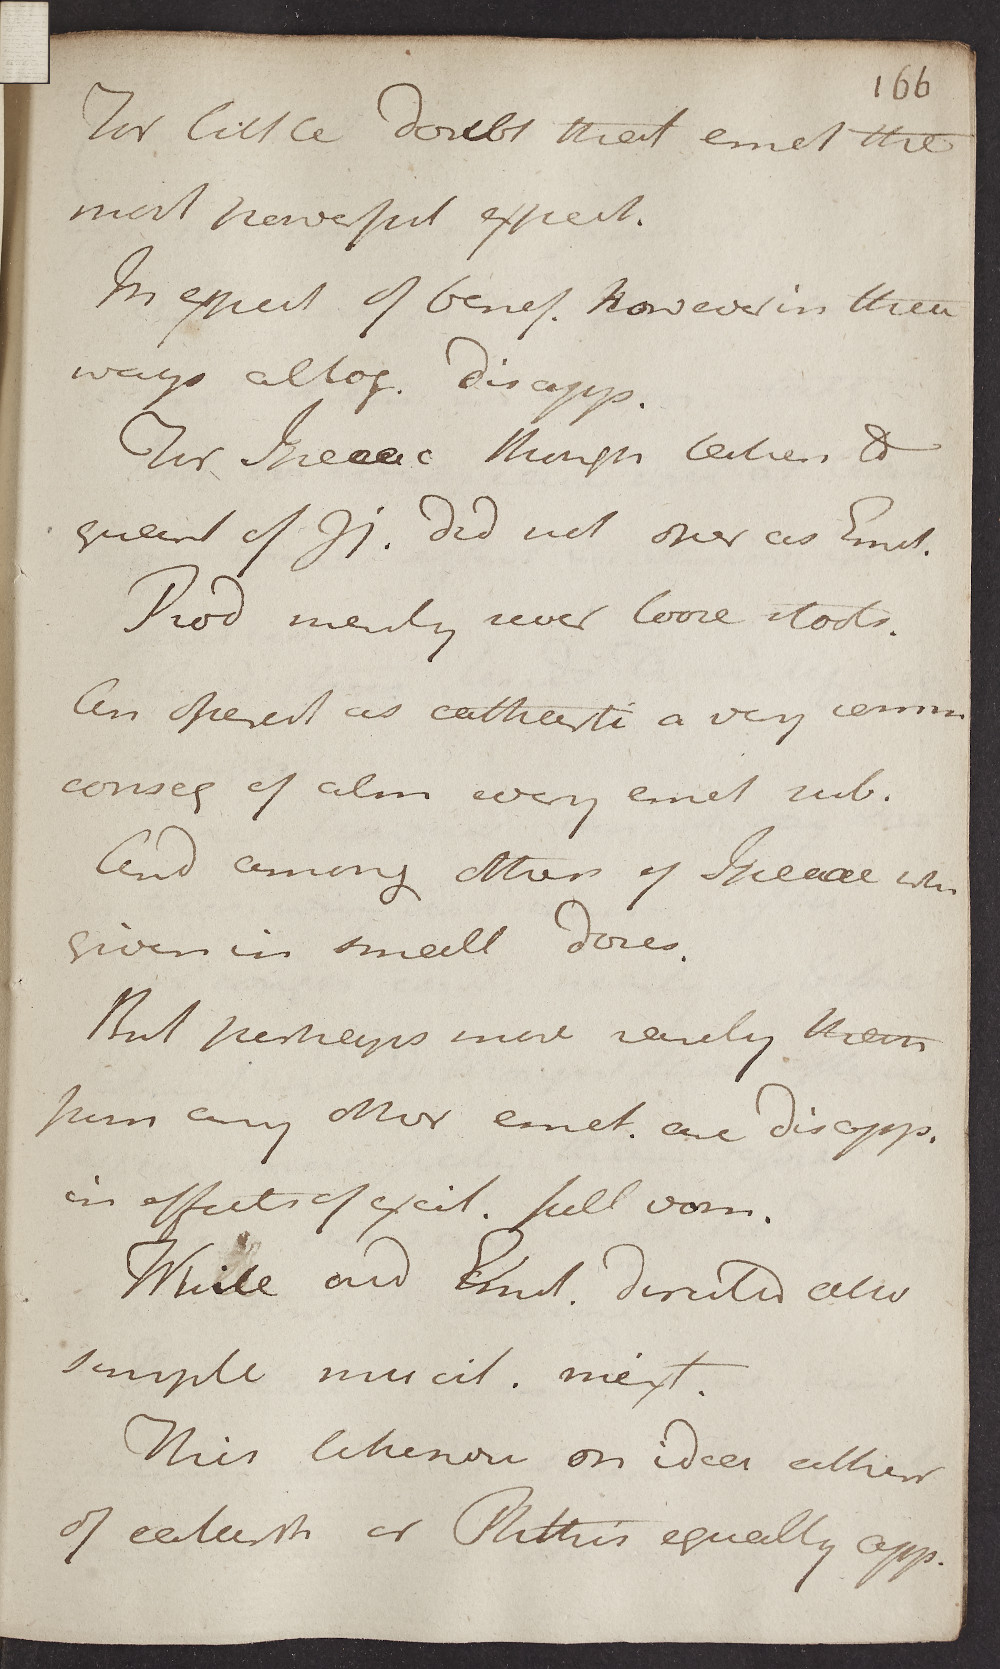 166
For little doubt that emet the
most powerful expect.
In expect of benef. however in these
ways altog. disapp.
For Ipecac though taken to
quant of ʒj. did not oper as Emet.
Prod merely sever loose stools.
An operat as catharti a very comm
conseq of alm every emet sub.
And among others of Ipecac when
given in small doses.
But perhaps more rarely than
from any other emet. are disapp.
in effects of excit. full vom.
While and Emet. directed also
simple mucil. mixt.
This likewise on idea either
of catarrh or Phthis equally app.